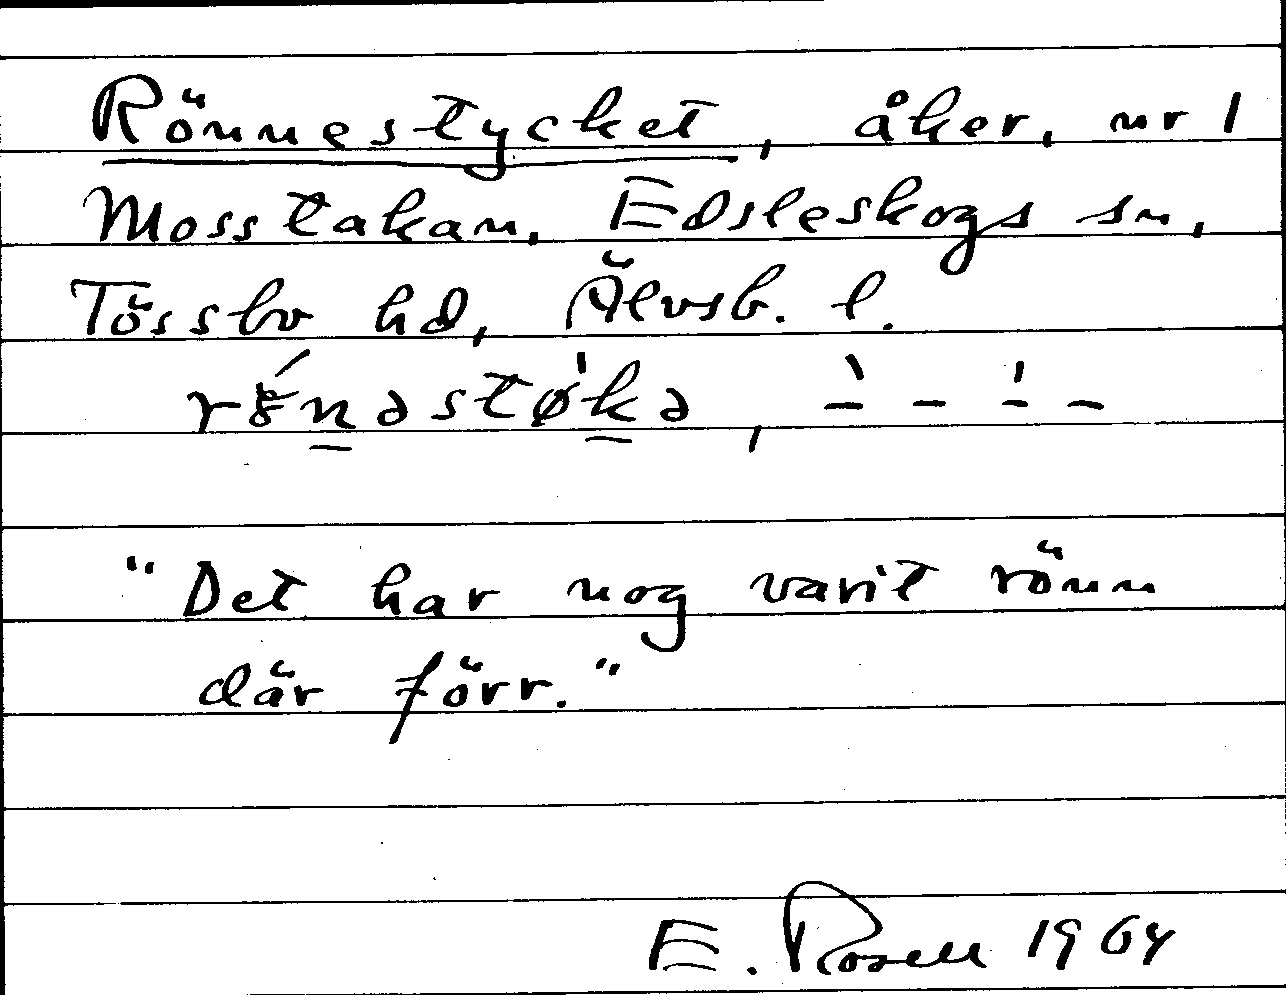 Rönnestycket, åker, nr 1
Mosstakan, Edsleskogs sn,
Tössbo hd, Älvsb. l.
"Det har nog varit rönn
där förr."
E. Rosell 1964